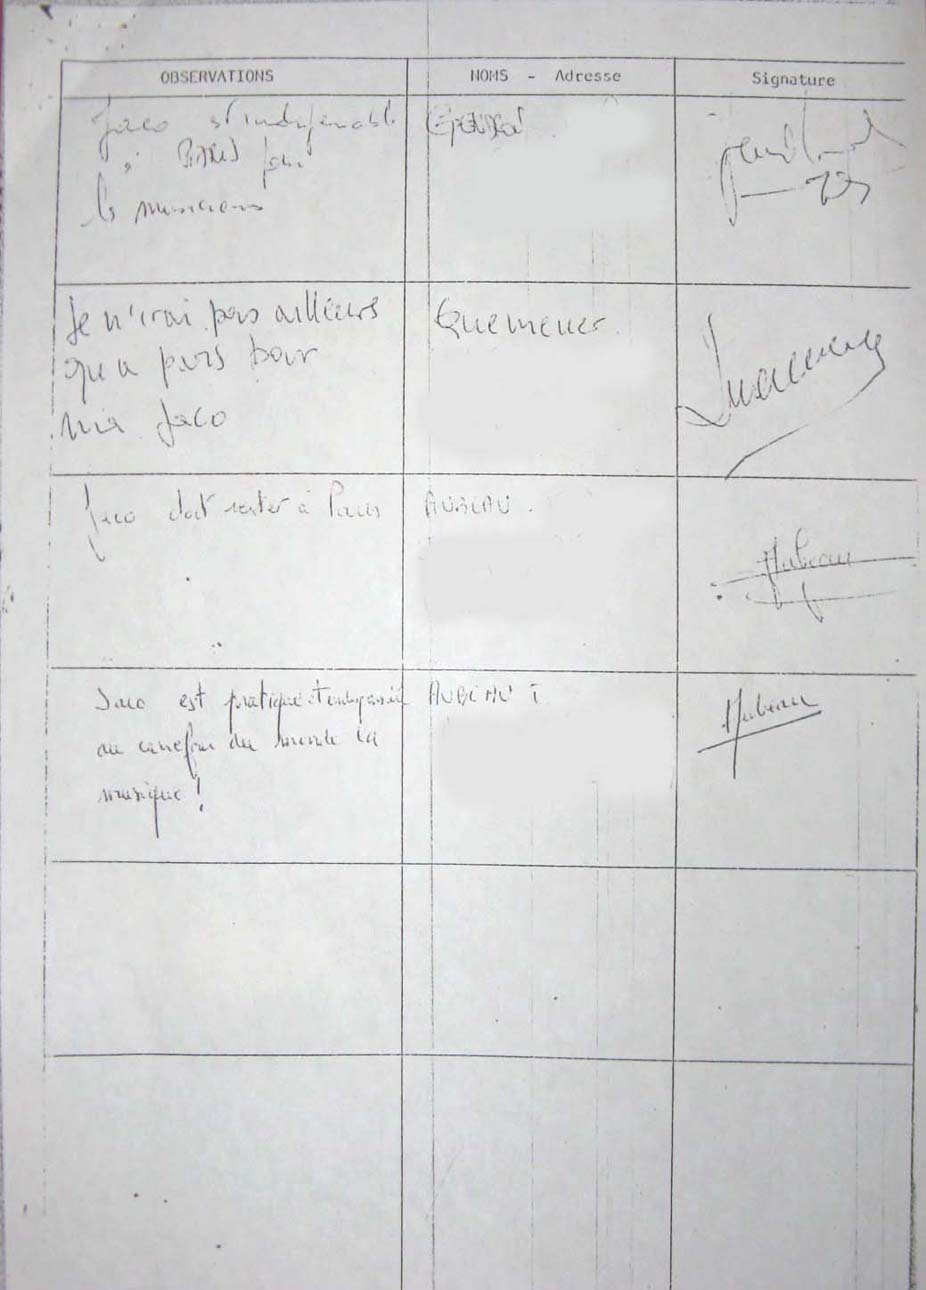 OBSERVATIONS NOMS - Adresse Signature
Jaco st indispensable
PARIS pour
les musiciens
Je n'irai pas ailleurs Quemener
qu'a paris pour
mia Jaco
Jaco doit rester à Paris AUBEAU.
Aubeau
Jaco est pratique et AUBEAU T Aubeau
au carrefour du monde la
musique!